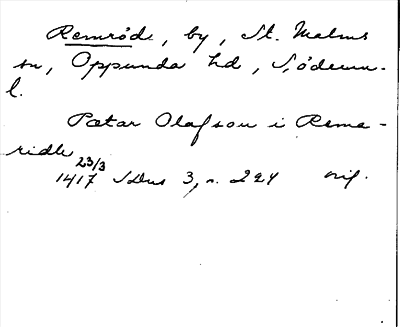 Remröde, by, St. Malms
sn, Oppunda hd, Söderm.
l.
Petar Olafson i Rema-
ridh
23/3
1417 SDns 3, n. 224 orig.